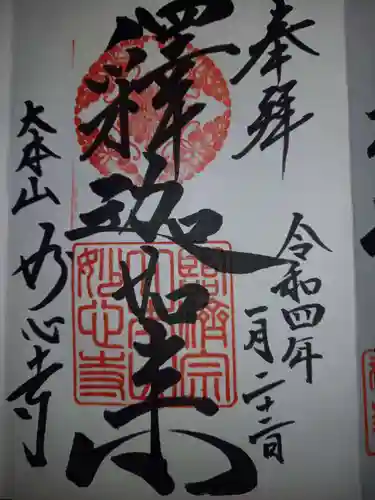 奉拝
令和四年
一月二十二日
釋迦如来
大本山
妙心寺
臨済宗
大本山
妙心寺